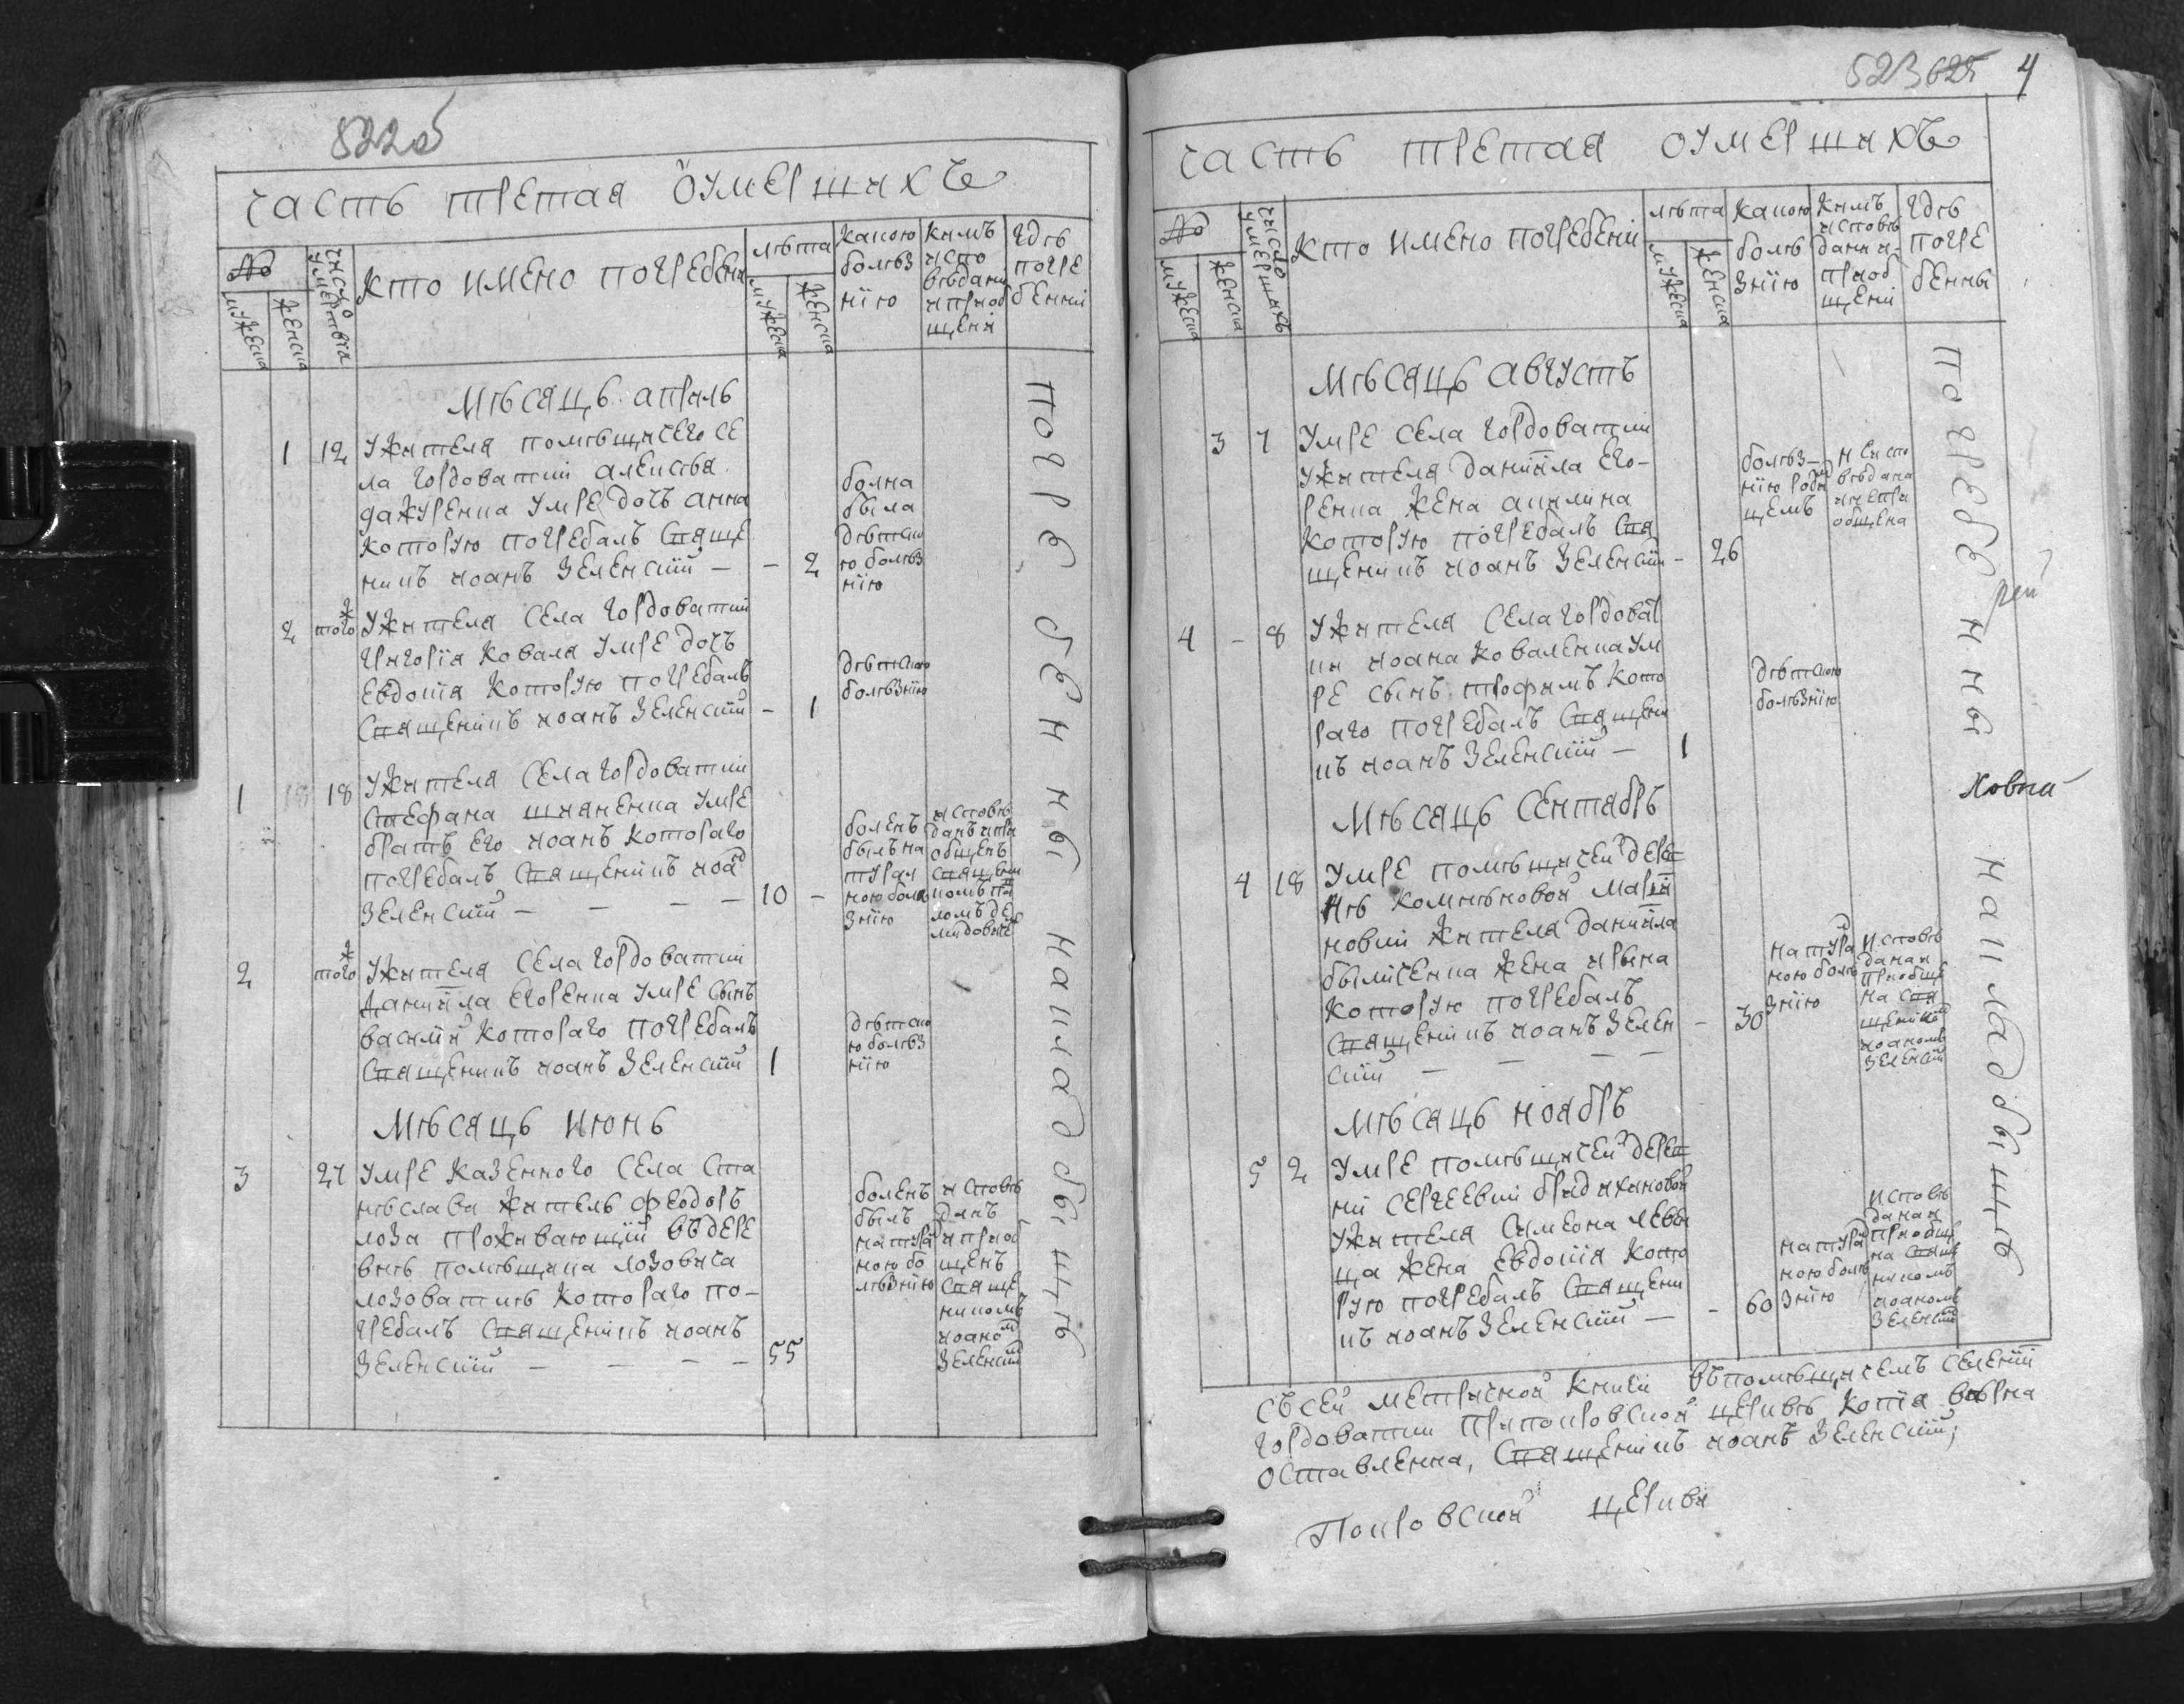 522об
часть третая о умершихъ
№
число умертвія
кто имено погребени
лѣта
какою болѣзнію
кимъ исповѣдани и приобщени
гдѣ погребенни
мужеска
женска
мужеска
женска
Мѣсяць априль
1 12 Ужителя помѣщичего се
ла Гордоватки алексѣя
умре дочъ анна
которую погребалъ Спяще
никъ иоанъ Зеленский – – 2
болна
была
дѣтско
ю болѣз
нію
2 того ж Ужителя Села Гордоватки
Григорія Коваля умре дочъ
Евдокія которую погребалъ
Спященикъ иоанъ Зеленский – 1
дѣтскою
болѣзнію
1 18 Ужителя Села Гордоватки
Стефана умре
братъ его иоанъ котораго
погребалъ Спященикъ иоанъ
Зеленский – – – – 10 –
боленъ
былъ на
турал
ною болѣ
знію
исповѣ
данъ и при
общенъ
Спящени
комъ
2 того ж Ужителя Села Гордоватки
Даниила Егоренка умре сынъ
василий котораго погребалъ
Спященикъ иоанъ Зеленский 1
дѣтско
ю болѣз
нію
Мѣсяць июнь
3 27 Умре казенного села Ста
нѣслава житель феодоръ
лоза проживающий въ дере
внѣ помѣщика лозовича
лозоватцѣ котораго по–
гребалъ Спященикъ иоанъ
Зеленский – – – – 55
боленъ
былъ
натурал
ною бо
лѣзнію
исповѣ
данъ
и приоб
щенъ
Спяще
никомъ
иоаном
Зеленским
погребенны на кладбыщѣ
523 625 4
часть третая о умершихъ
№
число умершихъ
кто имено погребени
лѣта
какою болѣзнію
кимъ исповѣдани и приобщени
гдѣ погребенны
мужеска
женска
мужеска
женска
Мѣсяць августъ
3 7 Умре села Гордоватки
Ужителя даниила Его–
ренка жена акилина
которую погребалъ Спя
щеникъ иоанъ Зеленский – 26
болѣз–
нію роди
щемъ
не испо
вѣдана
и не при
общена
4 – 8 Ужителя Села Гордоват
ки иоана Коваленка ум
ре сынъ трофимъ кото
раго погребалъ Спящени
къ иоанъ Зеленский – 1
дѣтскою
болѣзнію
Мѣсяць Сентябръ
4 18 Умре помѣщичей дерев
нѣ Комисновой Марія
новки жителя даниила
быличенка жена ирына
которую погребалъ
Спященикъ иоанъ Зелен – 30
ский – – – –
натурал
ною болѣ
знію
исповѣ
дана и
приобще
на Спя
щеникомъ
иоаномъ
Зеленским
Мѣсяць ноябръ
5 2 Умре помѣщичей дерев
ни Сергеевки
Ужителя Симеона
ца жена Евдокія кото
рую погребалъ Спящени
къ иоанъ Зеленский – – 60
натурал
ною болѣ
знію
исповѣ
дана и
приобще
на Спяще
никомъ
иоаномъ
Зеленским
погребенны на кладбыщѣ
съ сей метричной книги въ помѣщичемъ селении
Гордоватки при покровской церквѣ копія вѣрна
оставленна, Спященикъ иоанъ Зеленский,
Покровской церкви